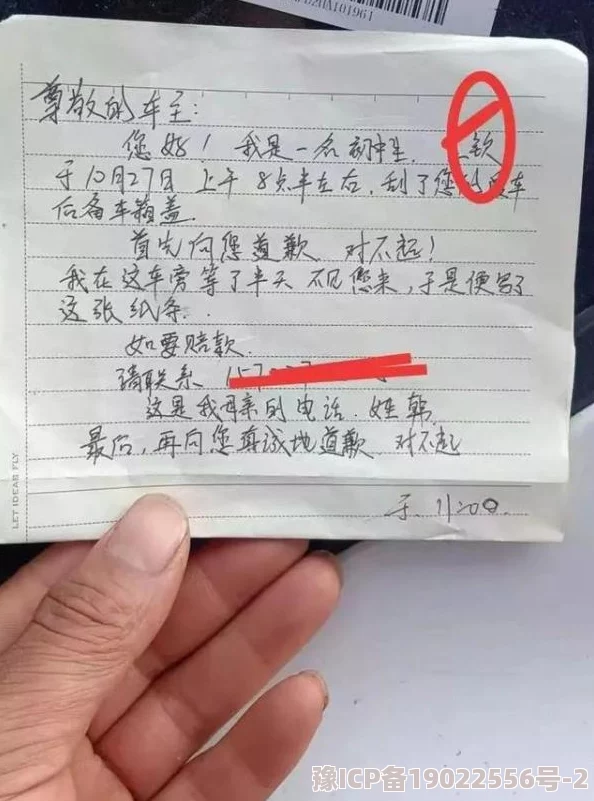 D2HA101961
尊敬的车主:
您好! 我是一名初中生.
于10月27日 上午 8点半左右, 刮了您的 车
后备车箱盖.
首先向您道歉. 对不起!
我在这车旁等了半天 不见您来, 于是便写了
这张纸条.
如要赔款.
请联系 157
这是我母亲的电话. 姓韩.
最后, 再向您真诚地道歉. 对不起
于. 11:20.
LET IDEAR FLY
豫ICP备19022556号-2